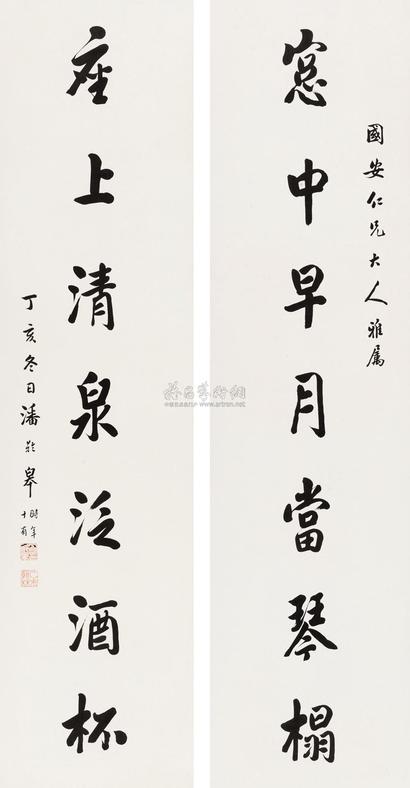 國安仁兄大人雅屬
窓中早月當琴榻
座上清泉泛酒杯
丁亥冬日潘齡皋
時年
十有
www.artron.net